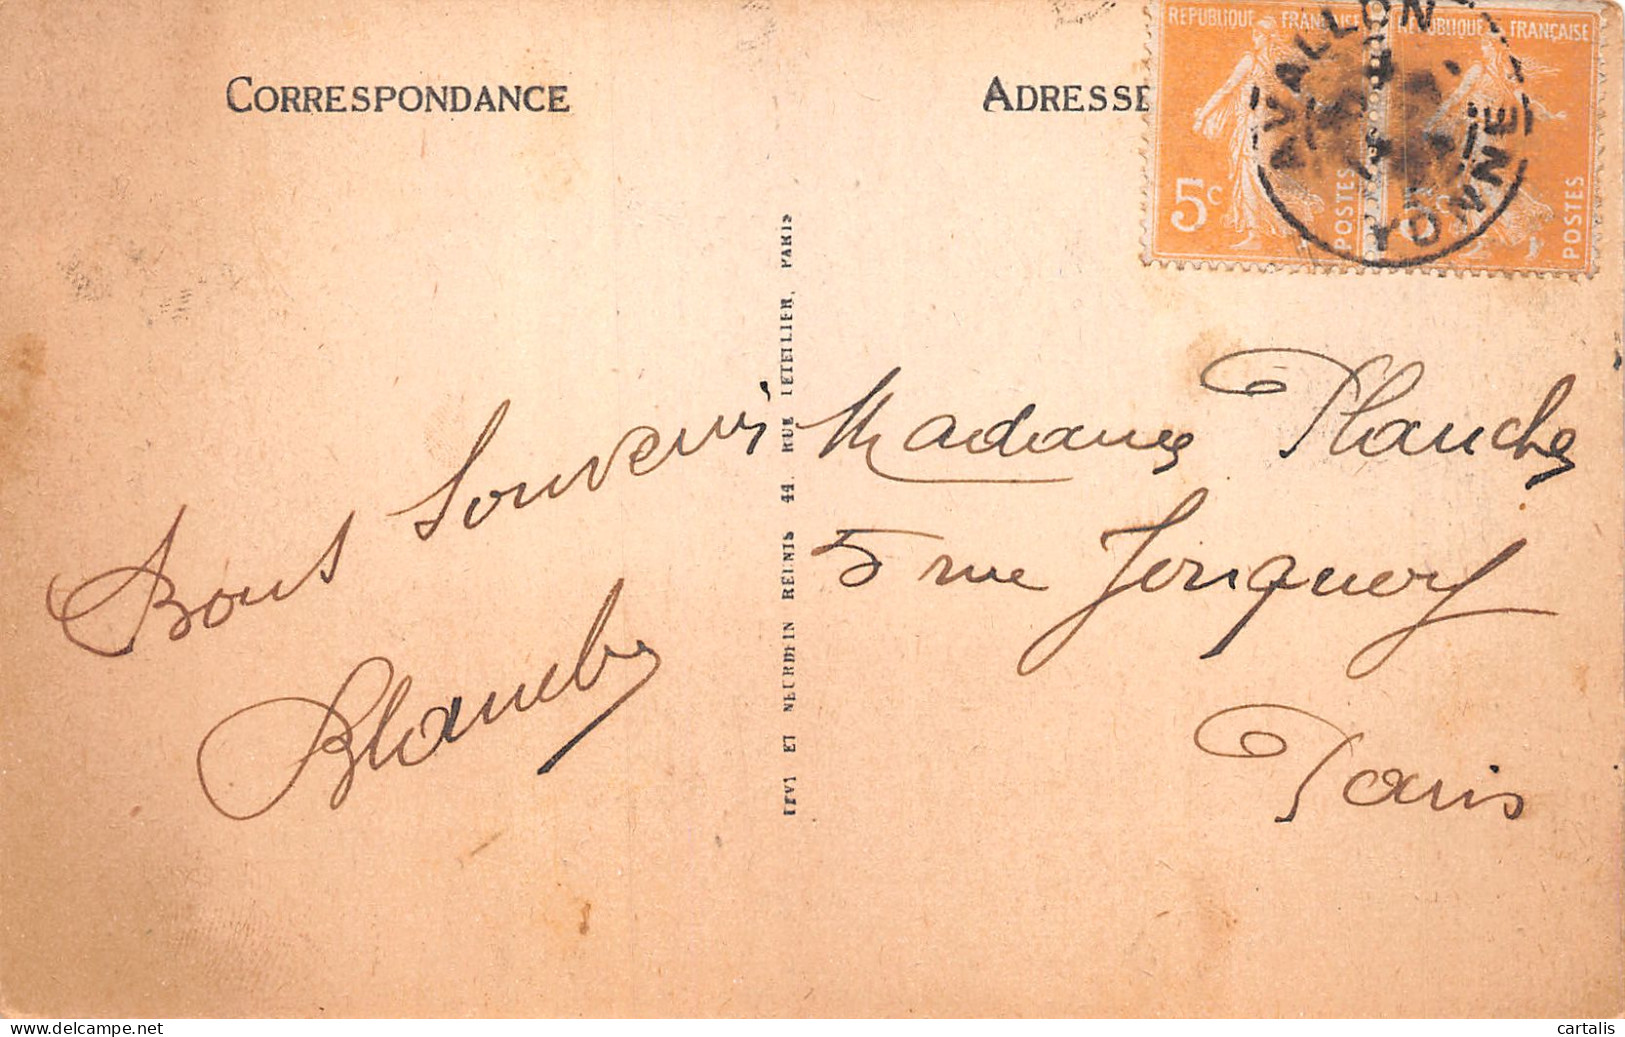 CORRESPONDANCE
ADRESSE
REPUBLIQUE FRANÇAISE
5c
POSTES
REPUBLIQUE FRANÇAISE
POSTES
AVALLON
YONNE
LEVY ET NEURDEIN RÉUNIS 44, RUE LETELLIER, PARIS
Bons Souvenirs
Blanche
Madame Planche
5 rue
Paris
delcampe.net
cartalis